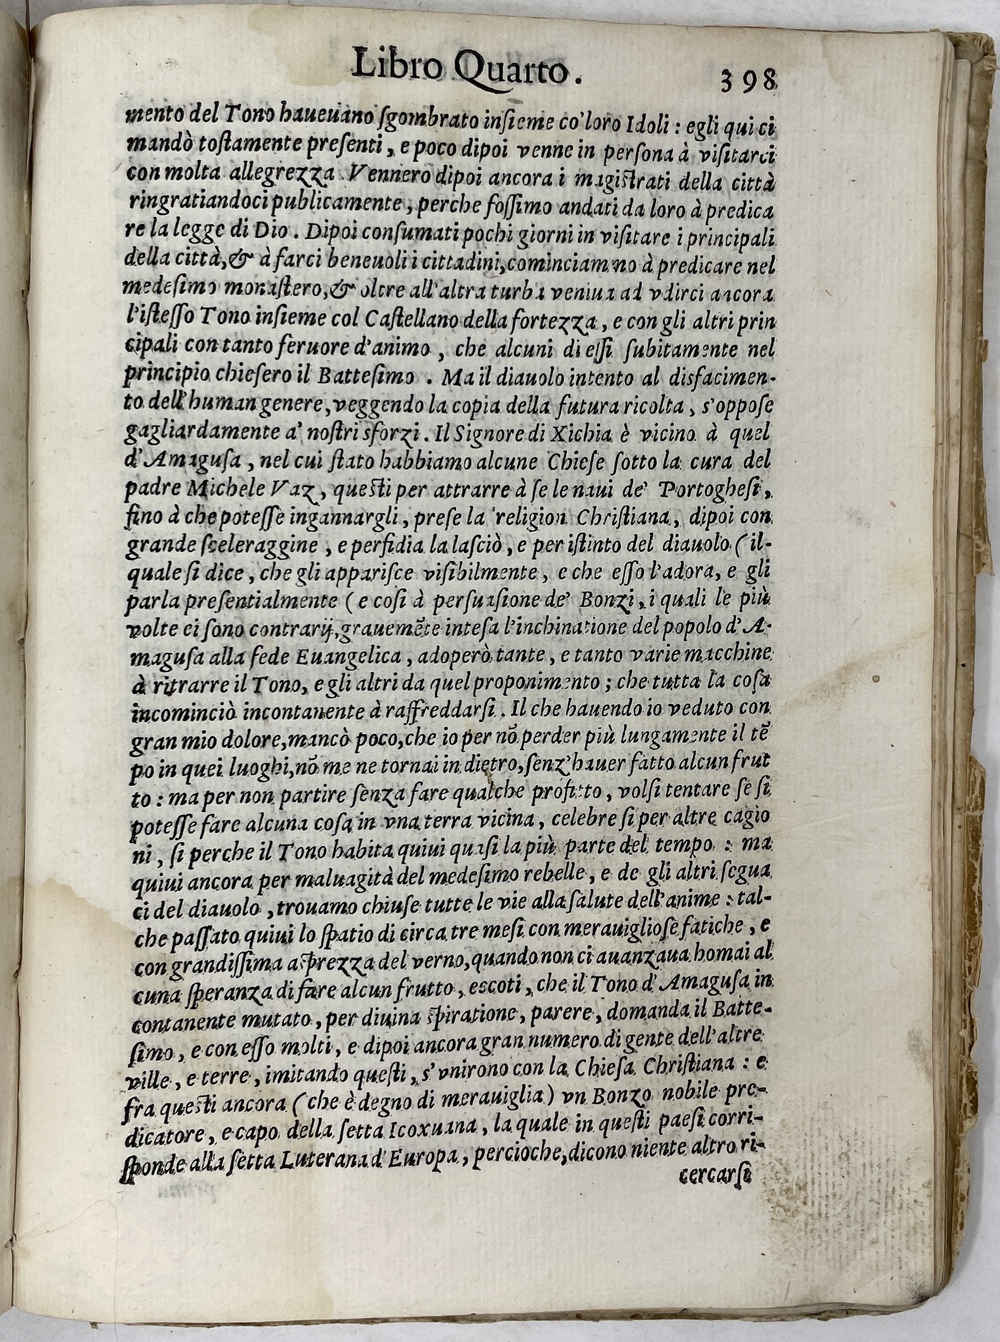 Libro Quarto. 398
mento del Tono haueuano ſgombrato inſieme co'loro Idoli : egli qui ci
mandò toſtamente preſenti, e poco dipoi venne in perſona à viſitarci
con molta allegrezza. Vennero dipoi ancora i magiſtrati della città
ringratiandoci publicamente, perche foſſimo andati da loro à predica
re la legge di Dio. Dipoi conſumati pochi giorni in viſitare i principali
della città, & à farci beneuoli i cittadini, cominciammo à predicare nel
medeſimo monaſtero, & oltre all'altra turba veniua ad vdirci ancora
l'iſteſſo Tono inſieme col Caſtellano della fortezza, e con gli altri prin
cipali con tanto feruore d'animo, che alcuni di eſſi ſubitamente nel
principio chieſero il Batteſimo. Ma il diauolo intento al disfacimen-
to dell'human genere, veggendo la copia della futura ricolta, s'oppoſe
gagliardamente a' noſtri sforzi. Il Signore di Xichia è vicino à quel
d'Amaguſa, nel cui ſtato habbiamo alcune Chieſe ſotto la cura del
padre Michele Vaz, queſti per attrarre à ſe le naui de' Portogheſi,
fino à che poteſſe ingannargli, preſe la religion Chriſtiana, dipoi con
grande ſceleraggine, e perfidia la laſciò, e per iſtinto del diauolo (il-
quale ſi dice, che gli appariſce viſibilmente, e che eſſo l'adora, e gli
parla preſentialmente (e coſi à perſuaſione de' Bonzi, i quali le più
volte ci ſono contrarij, grauemẽte inteſa l'inchinatione del popolo d'A-
maguſa alla fede Euangelica, adoperò tante, e tanto varie macchine
à ritrarre il Tono, e gli altri da quel proponimento ; che tutta la coſa
incominciò incontanente à raffreddarſi. Il che hauendo io veduto con
gran mio dolore, mancò poco, che io per nõ perder più lungamente il tẽ
po in quei luoghi, nõ me ne tornai in dietro, ſenz'hauer fatto alcun frut
to : ma per non partire ſenza fare qualche profitto, volſi tentare ſe ſi
poteſſe fare alcuna coſa in vna terra vicina, celebre ſi per altre cagio
ni, ſi perche il Tono habita quiui quaſi la più parte del tempo : ma
quiui ancora per maluagità del medeſimo rebelle, e de gli altri ſegua
ci del diauolo, trouamo chiuſe tutte le vie alla ſalute dell'anime : tal-
che paſſato quiui lo ſpatio di circa tre meſi con merauiglioſe fatiche, e
con grandiſſima aſprezza del verno, quando non ci auanzaua homai al
cuna ſperanza di fare alcun frutto, eccoti, che il Tono d'Amaguſa in
contanente mutato, per diuina ſpiratione, parere, domanda il Batte-
ſimo, e con eſſo molti, e dipoi ancora gran numero di gente dell'altre
ville, e terre, imitando queſti, s'vnirono con la Chieſa Chriſtiana : e
fra queſti ancora (che è degno di merauiglia) vn Bonzo nobile pre-
dicatore, e capo della ſetta Icoxuana, la quale in queſti paeſi corri-
ſponde alla ſetta Luterana d'Europa, percioche, dicono niente altro ri-
cercarſi